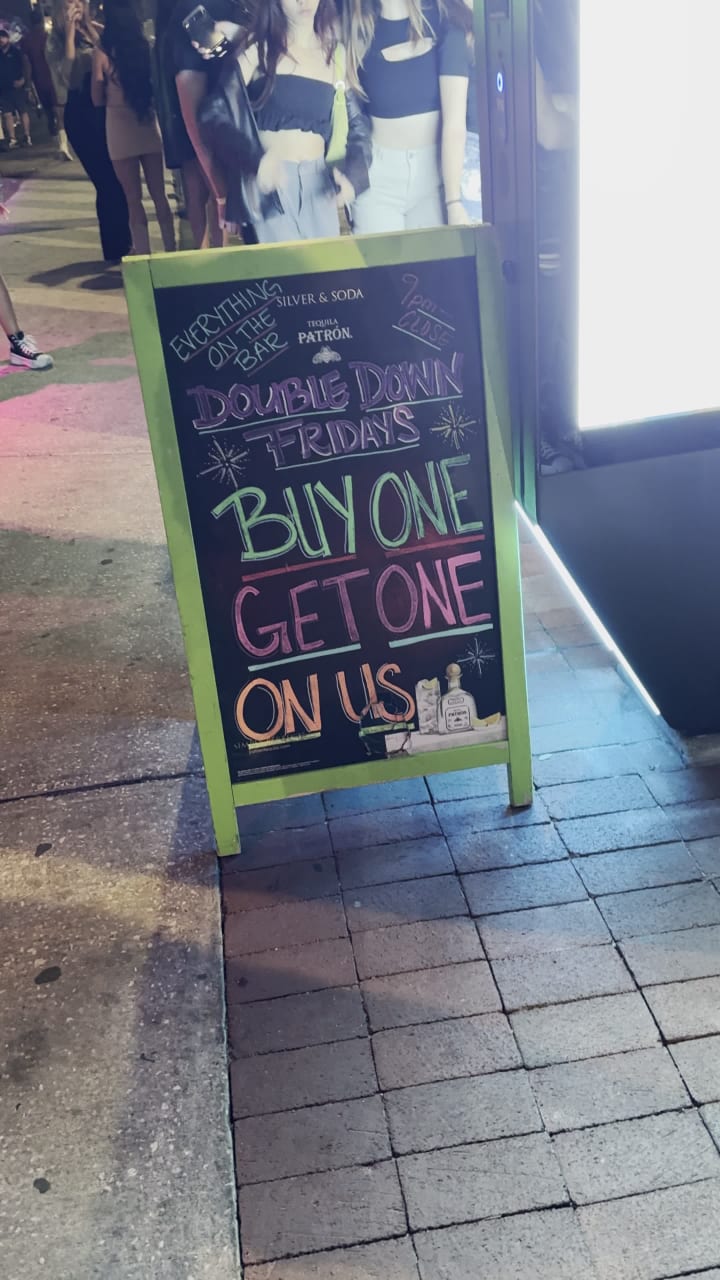 EVERYTHING
ON THE
BAR
SILVER & SODA
TEQUILA
PATRÓN.
9PM-
CLOSE
DOUBLE DOWN
FRIDAYS
BUY ONE
GET ONE
ON US
PATRÓN